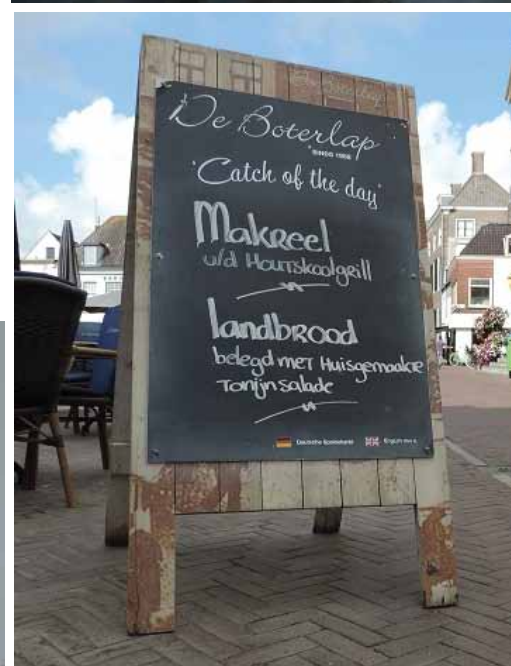 De Boterlap
De Boterlap
SINDS 1956
'Catch of the day'
Makreel
v/d Houtskoolgrill
landbrood
belegd met Huisgemaakte
Tonijnsalade
Deutsche Speisekarte English